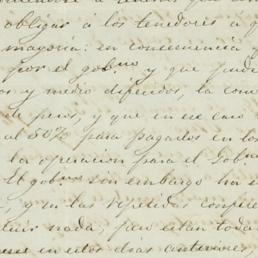 obligar á los tenedores á q
mayoria: en consecuencia y
por el gobno y que pued
os y medio diferidos, la conv
de pesos, y que en ese caso
al 50% para pagados en los
la operacion para el Gobno
El gobno sin embargo ha s
, y en las repetidas confere
luir nada; pero estan toda
en estos dias anteriores,